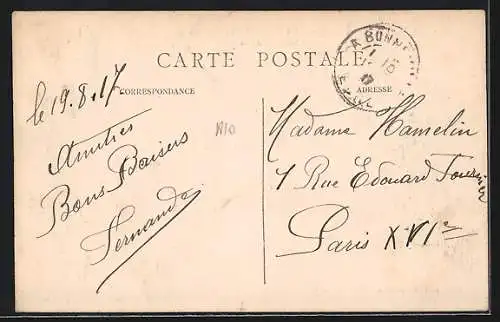 CARTE POSTALE
CORRESPONDANCE
ADRESSE
A BONN
le 19.8.17
Amitiés
Bons Baisers
Fernande
N10
Madame Hamelin
7 Rue Edouard Fournier
Paris XVIe